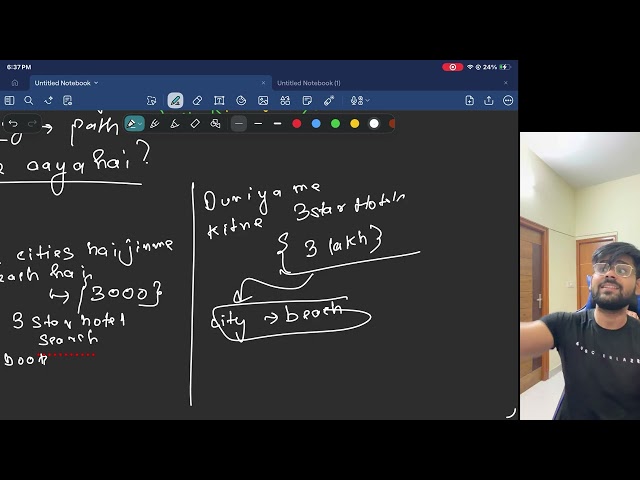 6:37 PM
24%
Untitled Notebook
Untitled Notebook (1)
→ path
aaya hai?
cities hai jinme
beach hai
↳ {3000}
3 star hotel
search
book
Duniya me
kitne 3 star Hotels
{3 lakh}
city → beach